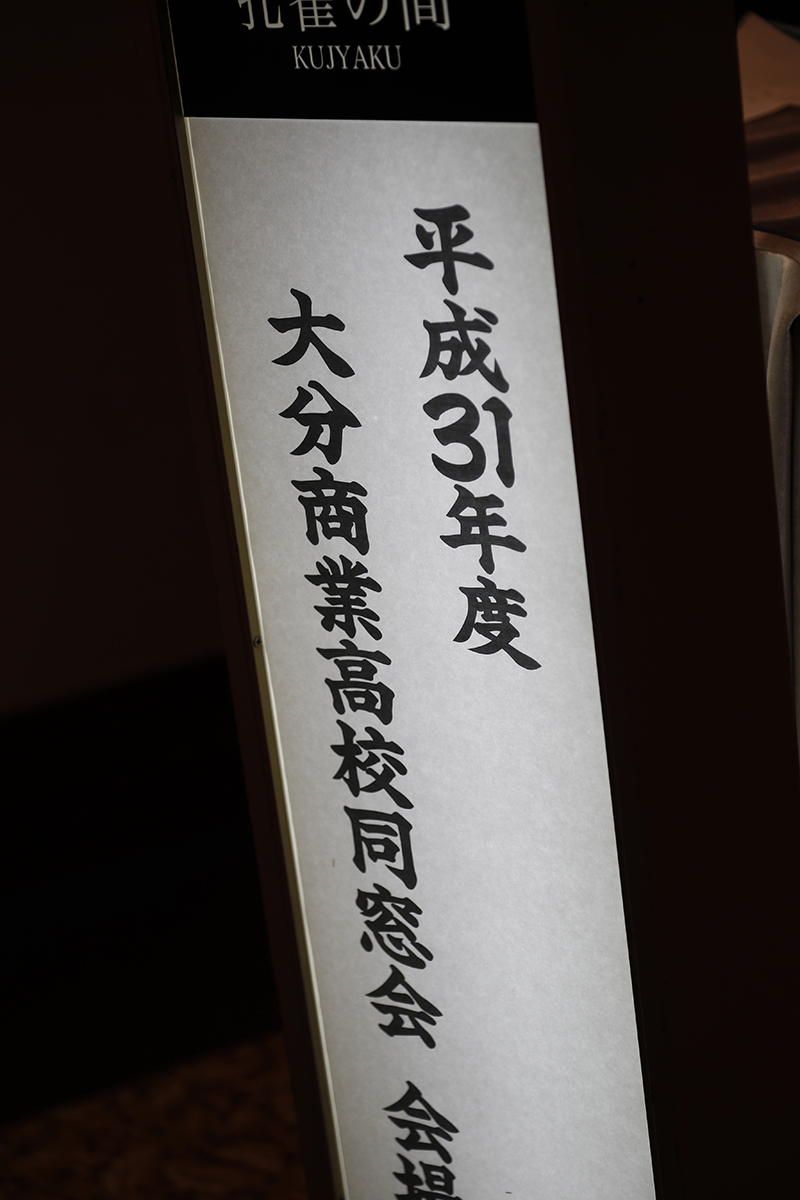 孔雀の間
KUJYAKU
平成31年度
大分商業高校同窓会 会場